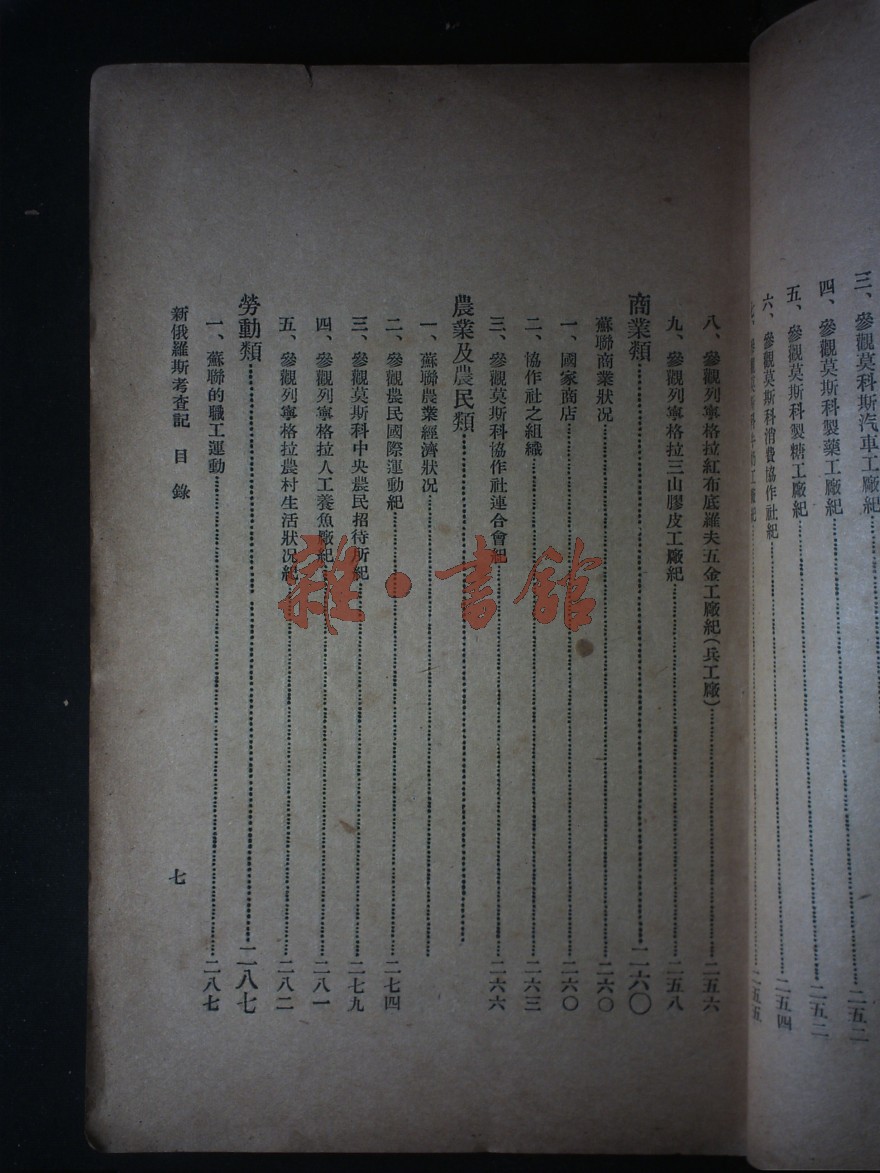 三、參觀莫科斯汽車工廠紀……二五二
四、參觀莫斯科製藥工廠紀……二五二
五、參觀莫斯科製糖工廠紀……二五四
六、參觀莫斯科消費協作社紀……二五五
八、參觀列寧格拉紅布底羅夫五金工廠紀(兵工廠)……二五六
九、參觀列寧格拉三山膠皮工廠紀……二五八
商業類……二六〇
蘇聯商業狀況……二六〇
一、國家商店……二六〇
二、協作社之組織……二六三
三、參觀莫斯科協作社連合會紀……二六六
農業及農民類……
一、蘇聯農業經濟狀況……
二、參觀農民國際運動紀……二七四
三、參觀莫斯科中央農民招待所紀……二七九
四、參觀列寧格拉人工養魚廠紀……二八一
五、參觀列寧格拉農村生活狀況紀……二八二
勞動類……二八七
一、蘇聯的職工運動……二八七
新俄羅斯考查記 目錄 七
雜·書館